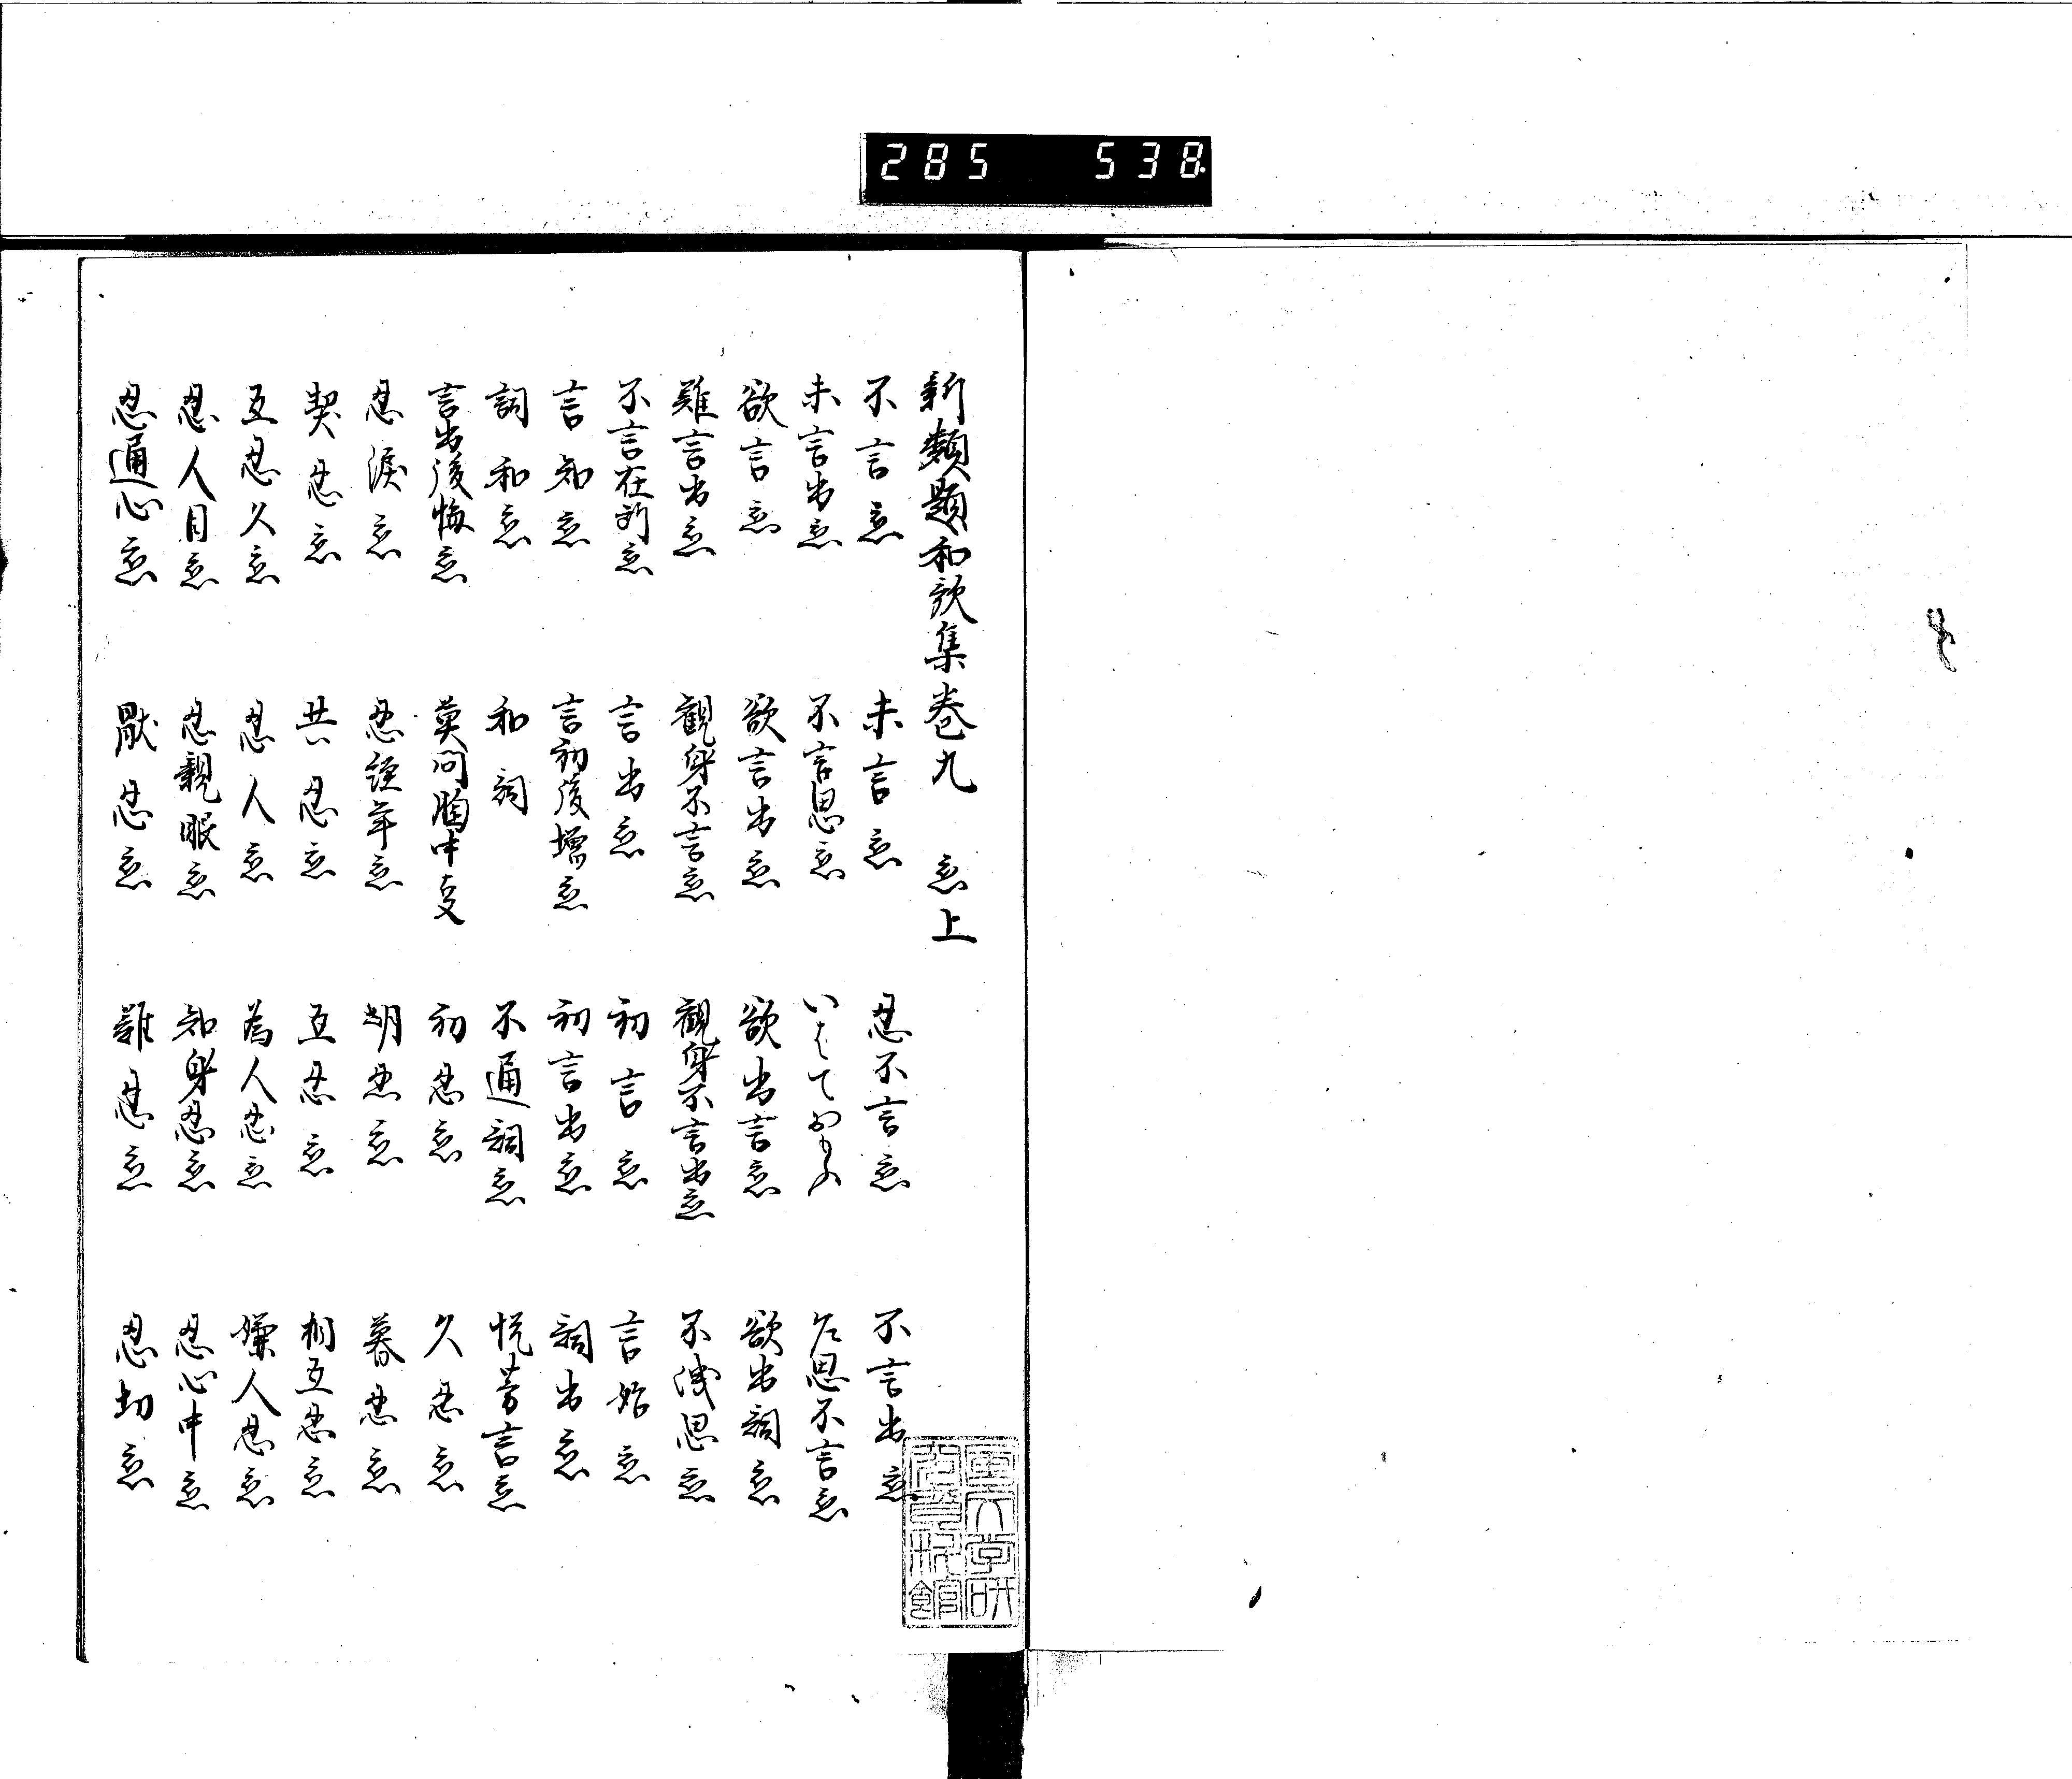 285 538
新類題和歌集巻九 恋上
不言恋 未言恋 忍不言恋 不言出恋
未言出恋 不言思恋 いはておもふ 乍思不言恋
欲言恋 欲言出恋 欲出言恋 欲出詞恋
難言出恋 観身不言恋 観身不言出恋 不洩思恋
不言在別恋 言出恋 初言恋 言始恋
言知恋 言初後増恋 初言出恋 詞出恋
詞和恋 和詞 不通詞恋 悦芳言恋
言出後悔恋 莫問胸中支 初忍恋 久忍恋
忍涙恋 忍経年恋 明忍恋 暮忍恋
契忍恋 共忍恋 互忍恋 相互忍恋
互忍久恋 忍人恋 為人忍恋 嫌人忍恋
忍人目恋 忍親眠恋 知身忍恋 忍心中恋
忍通心恋 厭忍恋 難忍恋 忍切恋